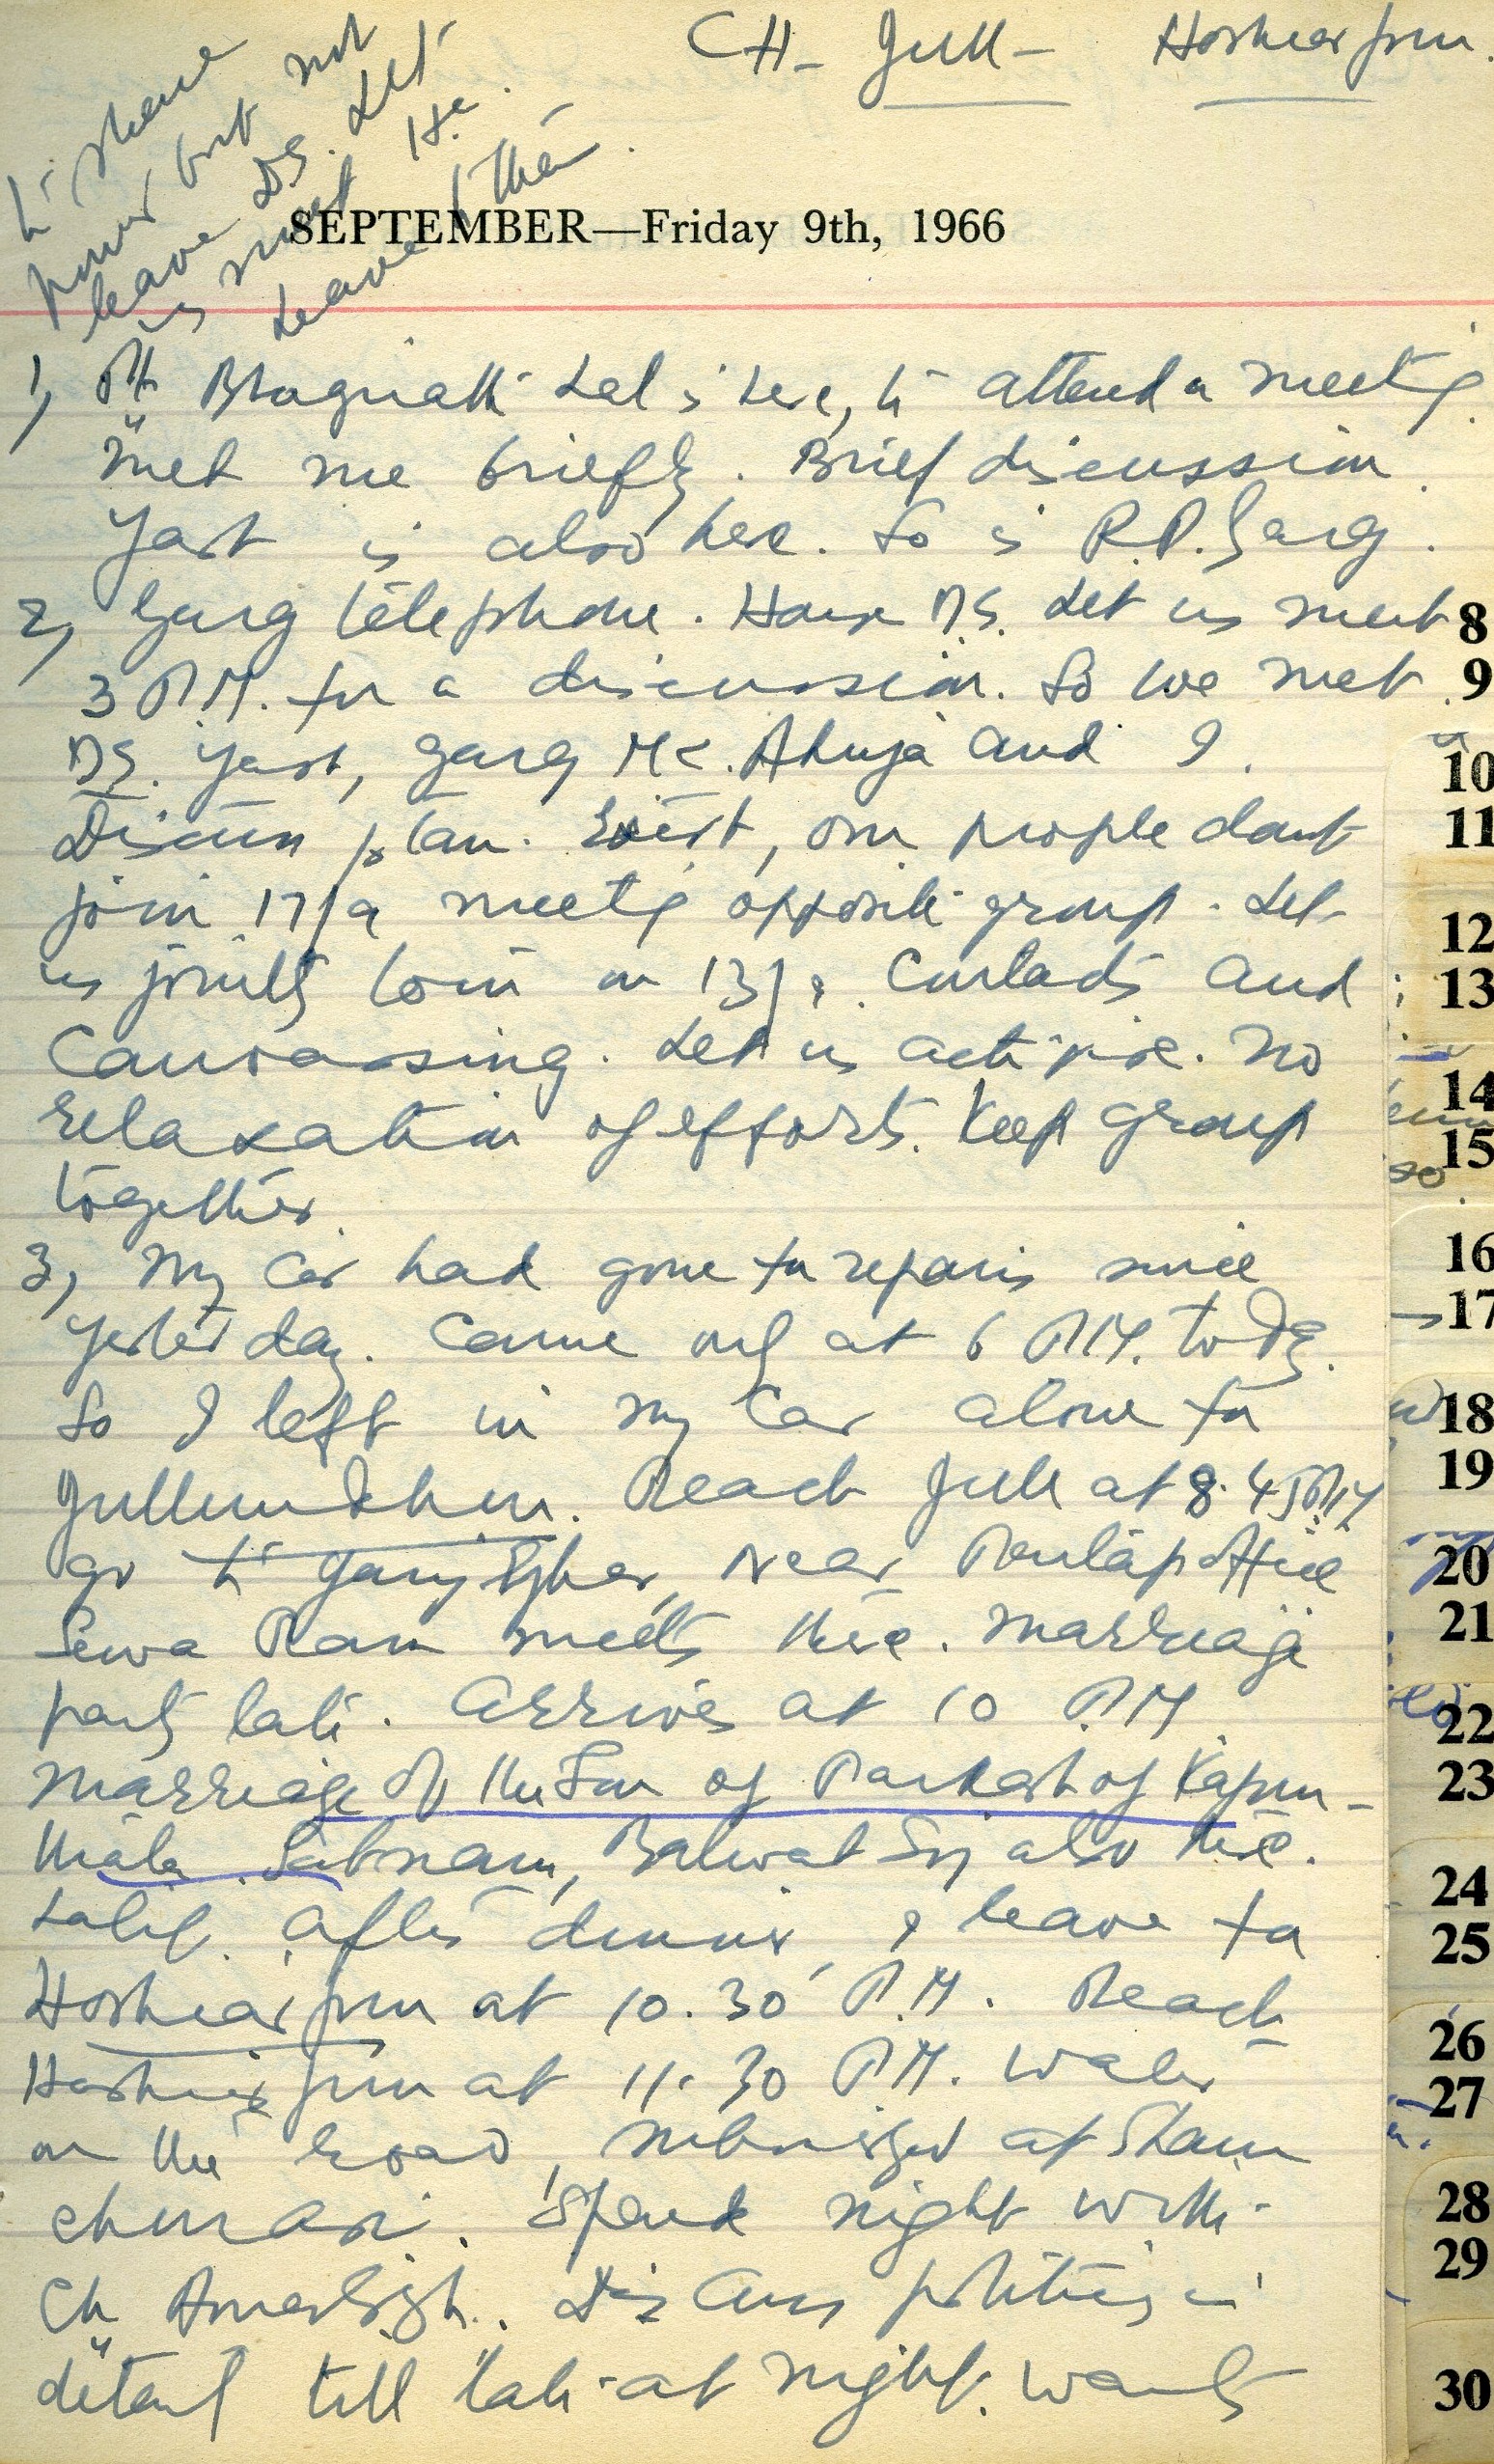 CH- Jull- Hoshiarpur.
to share
power but not
leave DS. Let
us meet He.
Leave then.
SEPTEMBER—Friday 9th, 1966
1, Pt Bhagirath Lal is here, to attend a meeting.
Met me briefly. Brief discussion.
Yash is also here. So is R.P. Garg.
2, Garg telephone. House D.S. Let us meet
3 P.M. for a discussion. So we met
DS. Yash, Garg, Ahuja and I.
Discuss plan. our people dont
join 17/9 meeting opposite group. Let
us jointly on 13/9. Contacts and
Canvassing. Let us activise. No
relaxation of efforts. Keep group
together.
3, My Car had gone for repairs since
yesterday. Came only at 6 P.M. today.
So I left in my Car alone for
Jullundhur. Reach Jull at 8.45 P.M.
go to near Partap office
Sewa Ram meets there. Marriage
party late. Arrives at 10 P.M.
Marriage of the Son of Parkash of Kapur-
thala. Satnam, Balwat Sing also there.
Lalit. After dinner, I leave for
Hoshiarpur at 10.30 P.M. Reach
Hoshiarpur at 11.30 P.M. Water
on the road, submerged at Sham
churasi. Spend night with
Ch Amarsigh. Discuss politics in
detail till late at night. Wants
8
9
10
11
12
13
14
15
16
17
18
19
20
21
22
23
24
25
26
27
28
29
30